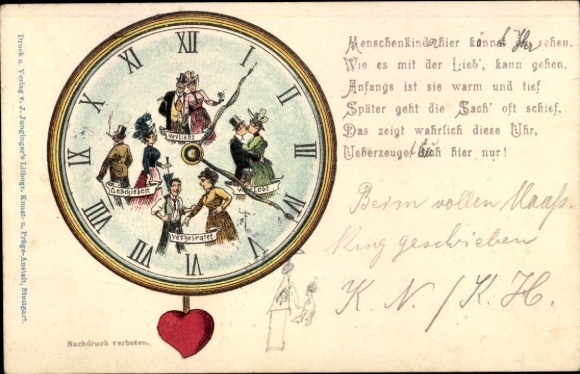 Menschenkinder hier könnt Ihr sehen,
Wie es mit der Lieb', kann gehen,
Anfangs ist sie warm und tief
Später geht die Sach' oft schief.
Das zeigt wahrlich diese Uhr,
Ueberzeuget Euch hier nur!
XII
I
II
III
IIII
V
VI
VII
VIII
IX
X
XI
Verliebt
Verlobt
Verheiratet
Geschieden
Beim vollen Maaß-
Krug geschrieben
K. N. / K. H.
Nachdruck verboten.
Druck u. Verlag v. J. Junginger's Lithogr. Kunst- u. Präge-Anstalt, Stuttgart.